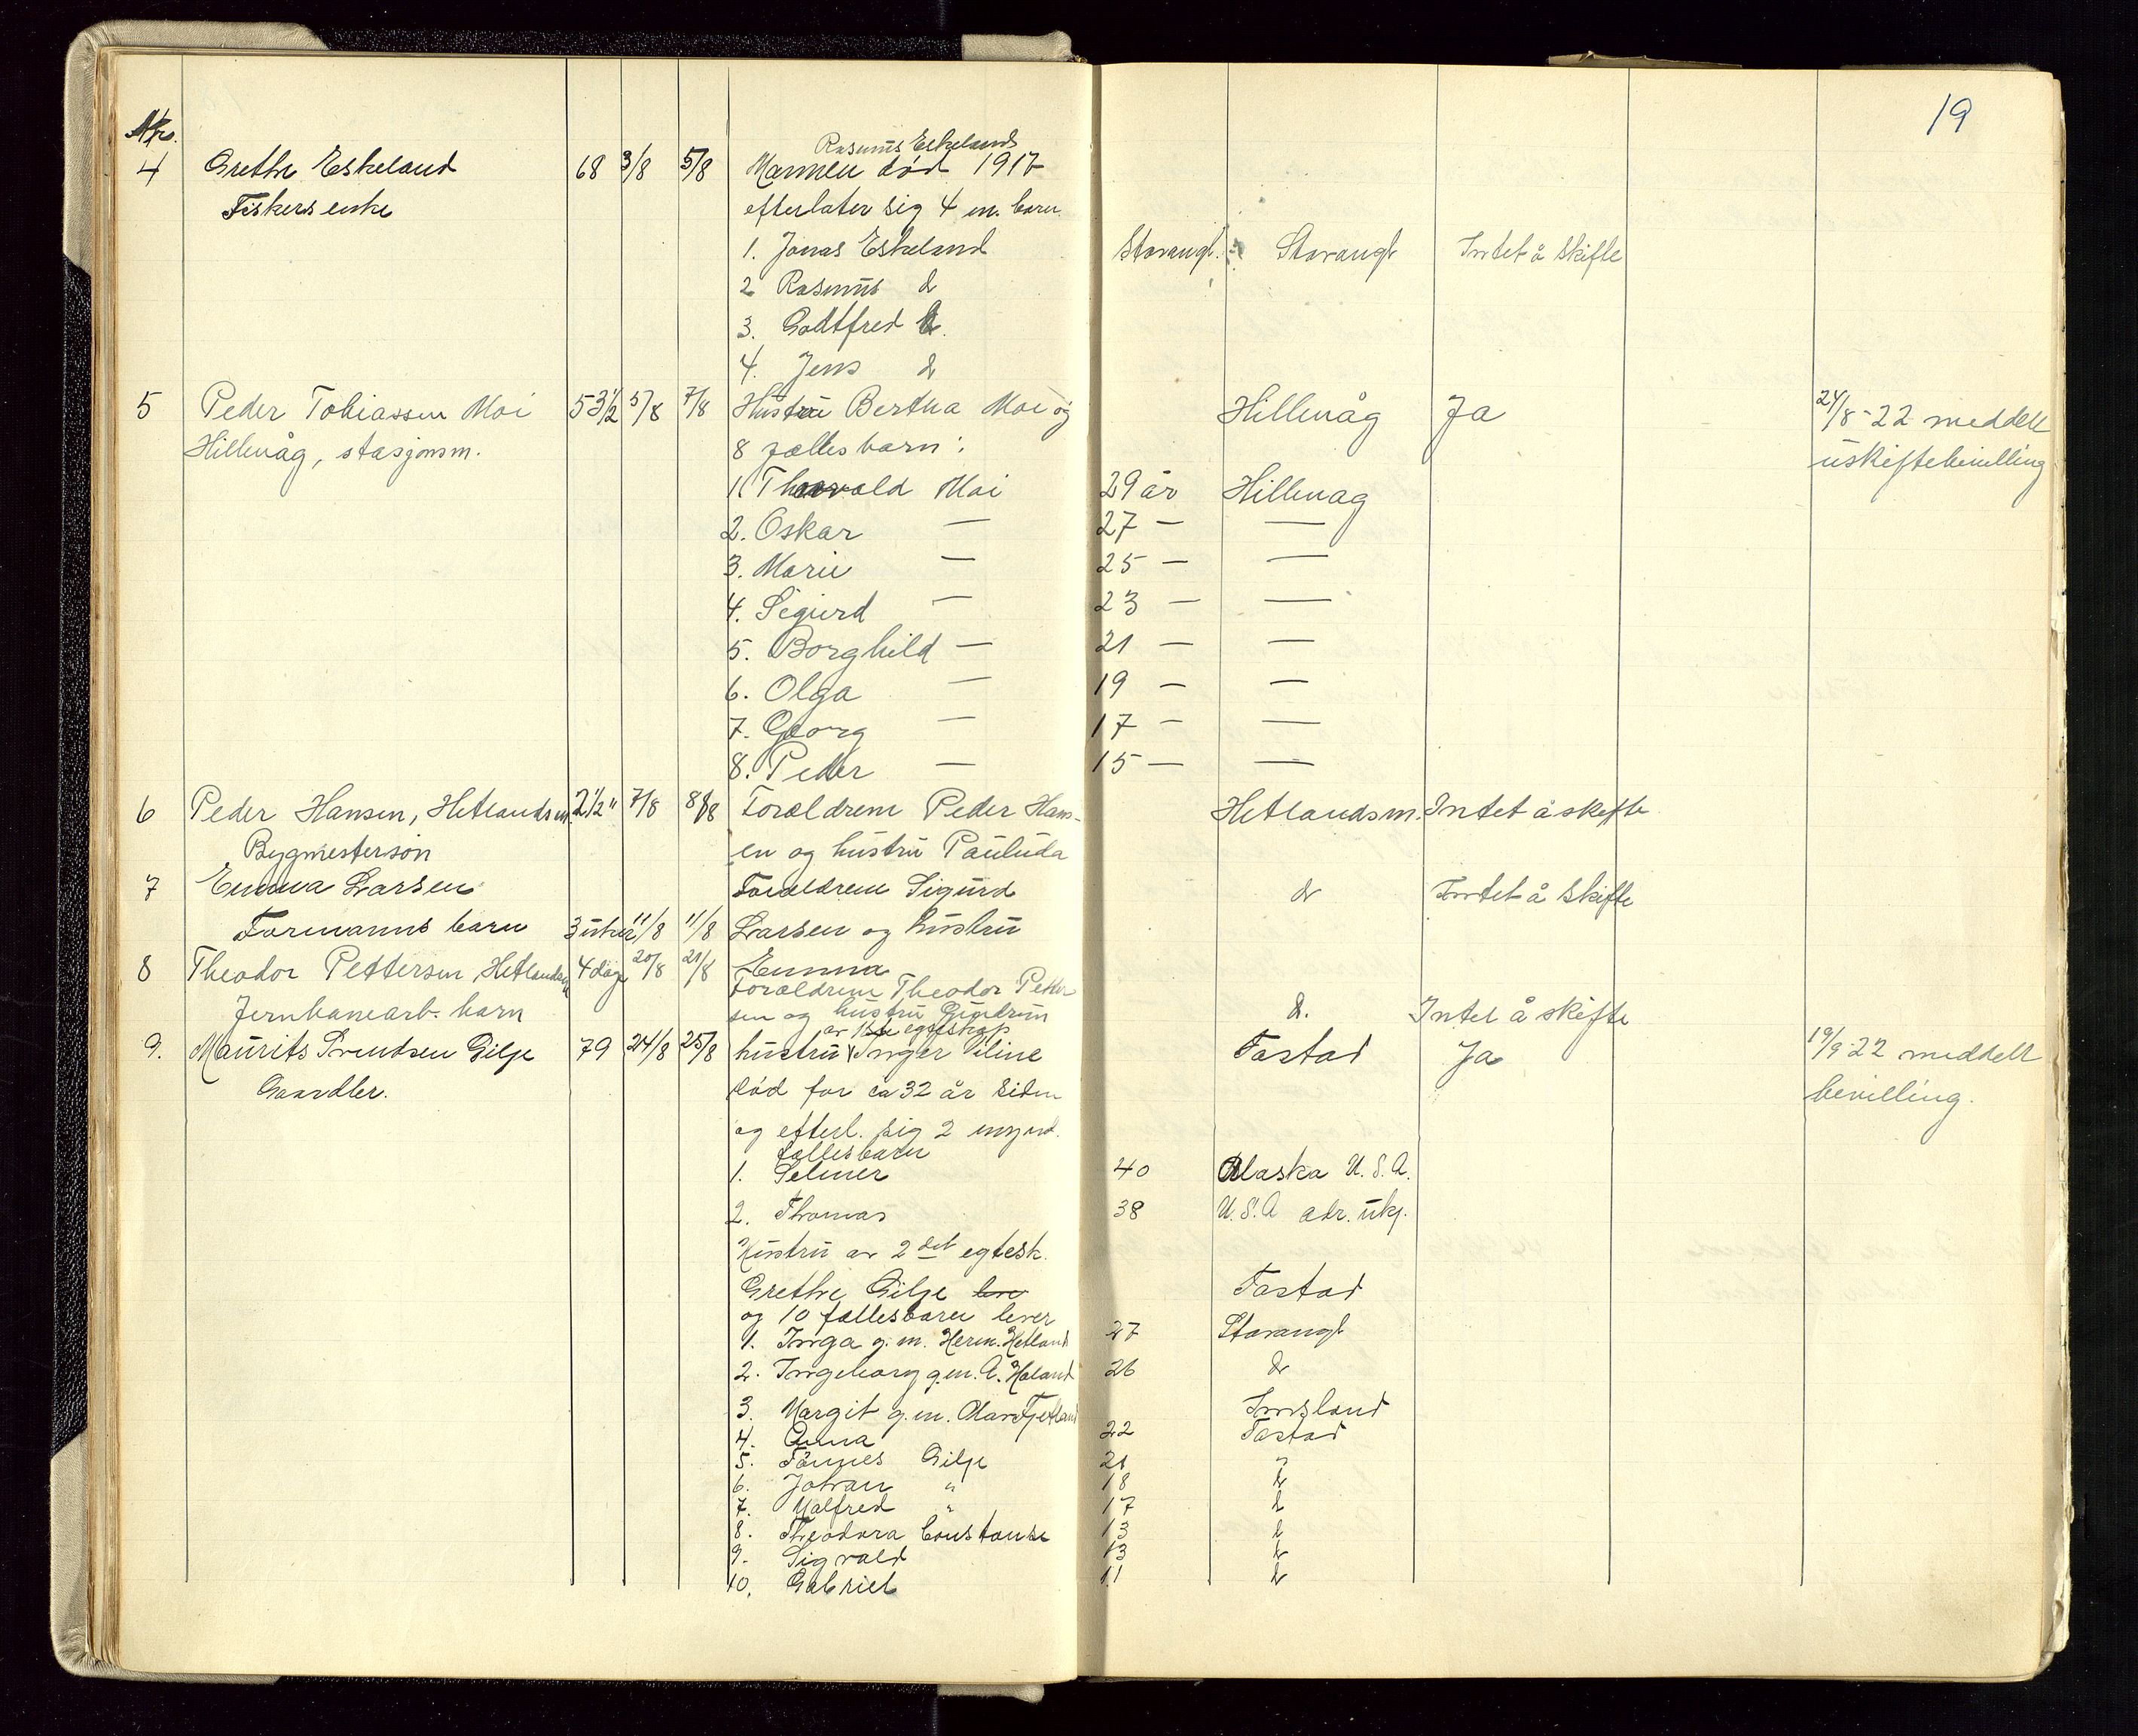 19
No.
Rasmus Eskelands
4 Grethe Eskeland 68 3/8 5/8 Mannen død 1917
Fiskers enke efterlater sig 4 m. barn
1. Jonas Eskeland Stavangr. Stavangr Intet å skifte
2 Rasmus do
3. Godtfred do.
4. Jens do
5 Peder Tobiassen Moi 53 1/2 5/8 7/8 Hustru Bertha Moi og Hillevåg Ja 24/8-22 meddelt
Hillevåg, stasjonsm. 8 fælles barn: uskiftebevilling
1. Thorvald Moi 29 år Hillevag
2. Oskar — 27 — —
3. Marie — 25 — —
4. Sigurd — 23 — —
5. Borghild — 21 — —
6. Olga — 19 — —
7. Georg — 17 — —
8. Peder — 15 — —
6 Peder Hansen, Hetlandsm. 2 1/2 " 7/8 8/8 Forældrene Peder Hans- Hetlandsm. Intet å skifte
Bygmestersøn en og hustru Paulida
7 Emma Larsen Forældrene Sigurd do Intet å skifte
Formanns barn 3 uker 11/8 11/8 Larsen og hustru
8 Theodor Pettersen Hetlandsm 4 dage 20/8 21/8 Emma
Forældrene Theodor Petter
Jernbanearb. barn sen og hustru Gudrun do. Intet å skifte
av 1ste egteskap
9. Maurits Svendsen Gilje 79 24/8 25/8 hustru Inger Oline Tastad Ja 19/9-22 meddelt
Gaardbr. død for ca 32 år siden bevilling.
og efterl. sig 2 mynd.
fællesbarn
1. Selmer 40 Alaska U.S.A.
2. Thomas 38 U.S.A adr. ukj.
Hustru av 2det egtesk.
Grethe Gilje lever Tastad
og 10 fællesbarn lever
1. Inga g.m. Herm. Hetland 27 Stavangr
2. Ingeborg g.m. A. Haland 26 do
3. Margit g.m. Olav Fjetland Imsland
4. Anna 22 Tastad
5. Tønnes Gilje 21 "
6. Johan " 18 do
7. Malfred " 17 do
8. Theodora Constanse 13 do
9. Sigvald 13 do
10. Gabriel 11 do